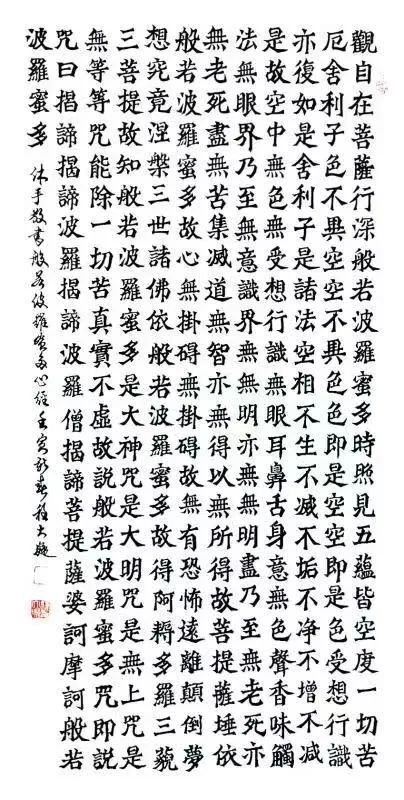 觀自在菩薩行深般若波羅蜜多時照見五蘊皆空度一切苦
厄舍利子色不異空空不異色色即是空空即是色受想行識
亦復如是舍利子是諸法空相不生不减不垢不净不增不减
是故空中無色無受想行識無眼耳鼻舌身意無色聲香味觸
法無眼界乃至無意識界無無明亦無無明盡乃至無老死亦
無老死盡無苦集滅道無智亦無得以無所得故菩提薩埵依
般若波羅蜜多故心無掛礙無掛礙故無有恐怖遠離顛倒夢
想究竟涅槃三世諸佛依般若波羅蜜多故得阿耨多羅三藐
三菩提故知般若波羅蜜多是大神咒是大明咒是無上咒是
無等等咒能除一切苦真實不虛故説般若波羅蜜多咒即説
咒曰揭諦揭諦波羅揭諦波羅僧揭諦菩提薩婆訶摩訶般若
波羅蜜多
沐手敬書般若波羅蜜多心經壬寅新春程大